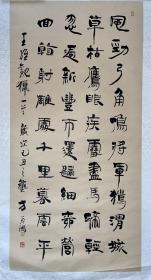 風勁弓角鳴將軍獵渭城
草枯鷹眼疾雪盡馬蹄輕
忽過新豐市還歸細柳營
回看射雕處千里暮雲平
王維觀獵一首 歲次己丑之